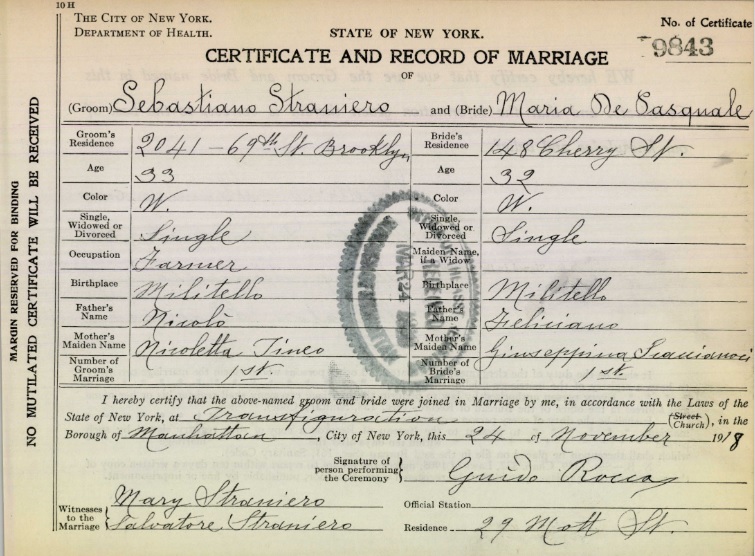 10 H
THE CITY OF NEW YORK.
DEPARTMENT OF HEALTH.
STATE OF NEW YORK.
No. of Certificate
9843
CERTIFICATE AND RECORD OF MARRIAGE
OF
(Groom) Sebastiano Straniero and (Bride) Maria De Pasquale
Groom's Residence 2041 - 69th St. Brooklyn Bride's Residence 148 Cherry St.
Age 33 Age 32
Color W. Color W.
Single, Widowed or Divorced Single Single, Widowed or Divorced Single
Occupation Farmer Maiden Name, if a Widow
Birthplace Militello Birthplace Militello
Father's Name Nicolò Father's Name Feliciano
Mother's Maiden Name Nicoletta Tineo Mother's Maiden Name Giuseppina
Number of Groom's Marriage 1st. Number of Bride's Marriage 1st
I hereby certify that the above-named groom and bride were joined in Marriage by me, in accordance with the Laws of the
State of New York, at Transfiguration (Street Church), in the
Borough of Manhattan, City of New York, this 24 of November 1918
Signature of person performing the Ceremony Guido Rocca
Witnesses to the Marriage Mary Straniero
Salvatore Straniero
Official Station
Residence 29 Mott St.
MARGIN RESERVED FOR BINDING
NO MUTILATED CERTIFICATE WILL BE RECEIVED